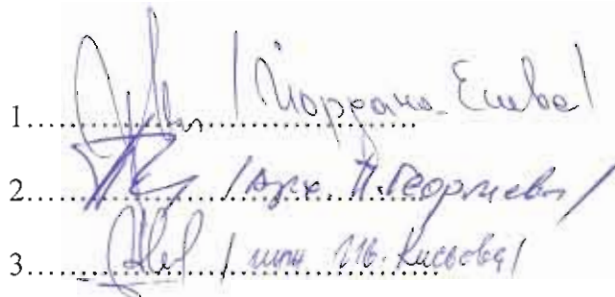 1. /Йордана Ешева/
2. /арх. П. Георгиева/
3. /инж. Ив. Кисьова/